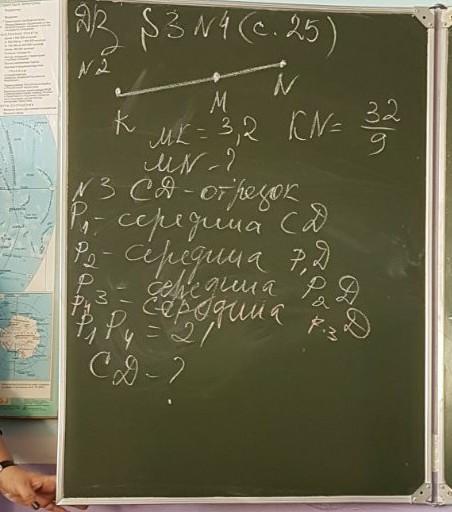 Д/З §3 N4 (с. 25)
N2
K M N
MK = 3,2 KN = 32/9
MN - ?
N3 CD - отрезок
P₁ - середина CD
P₂ - середина P₁D
P₃ - середина P₂D
P₄ - середина P₃D
P₁P₄ = 21
CD - ?